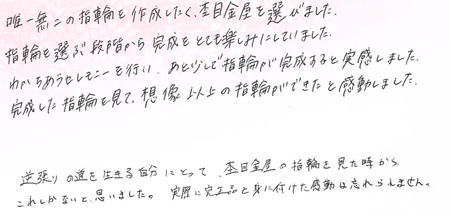 唯一無二の指輪を作成したく、杢目金屋を選びました。
指輪を選ぶ段階から完成をとても楽しみにしていました。
わかちあうセレモニーを行い、あと少しで指輪が完成すると実感しました。
完成した指輪を見て、想像以上の指輪ができたと感動しました。
逆張りの道を生きる自分にとって、杢目金屋の指輪を見た時から
これしかないと思いました。実際に完成品と身に付けた感動は忘れられません。